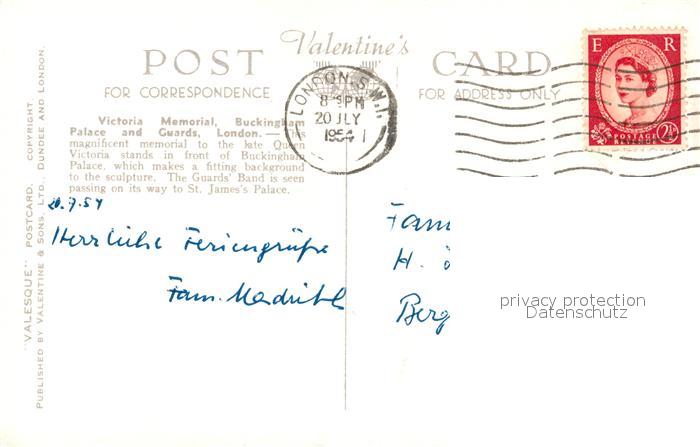 Valentine's
POST CARD
FOR CORRESPONDENCE
FOR ADDRESS ONLY
LONDON, S.W.1
8 - PM
20 JLY
1954
E R
POSTAGE
REVENUE
2½
Victoria Memorial, Buckingham
Palace and Guards, London.—This
magnificent memorial to the late Queen
Victoria stands in front of Buckingham
Palace, which makes a fitting background
to the sculpture. The Guards' Band is seen
passing on its way to St. James's Palace.
"VALESQUE" POSTCARD. COPYRIGHT.
PUBLISHED BY VALENTINE & SONS, LTD., DUNDEE AND LONDON.
20.7.54
Herrliche Feriengrüße
Fam.
Fam
H.
Berg
privacy protection
Datenschutz